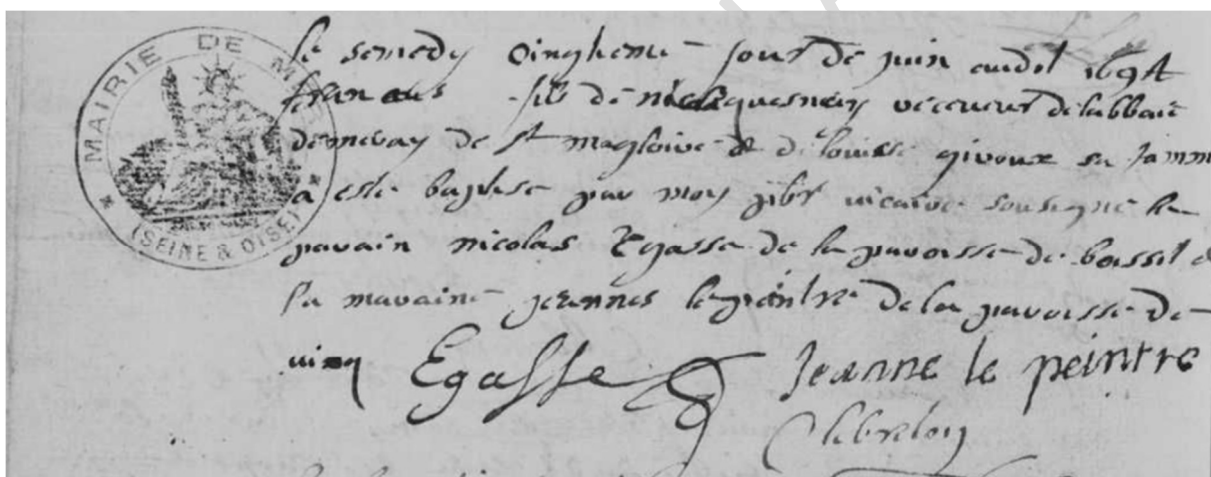 MAIRIE DE MÉRÉ
(SEINE & OISE)
le semedy cinqheme jour de juin audit 1694
francois fils de nicolas quesnay receveur de labbaie
de mevay de st magloire & de louisse givoux sa famm
a este baptese par moy pbr vicaire sousegne le
parain nicolas Egasse de la paroisse de
la maraine jeannes lepeintre de la paroisse de
vicq Egasse Jeanne le peintre
lebreton